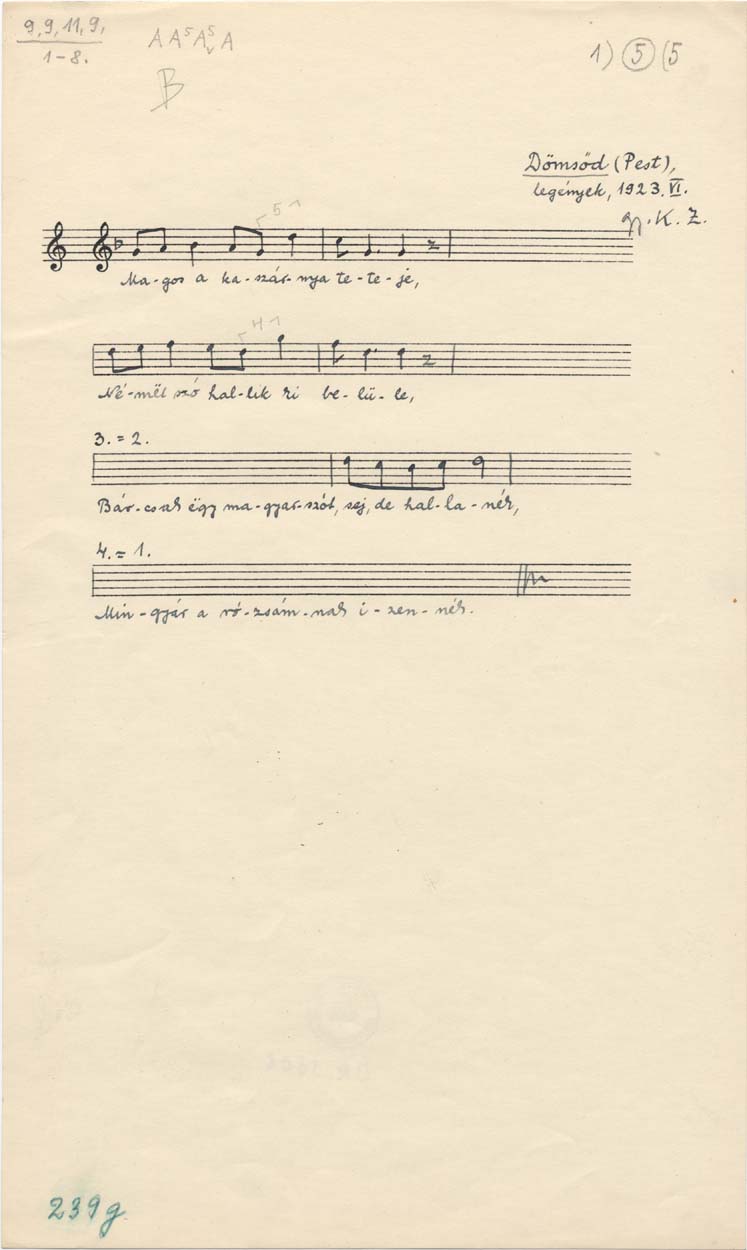 9, 9, 11, 9,
1-8.
A A⁵ A⁵ᵥ A
B
1) 5 (5
Dömsöd (Pest),
legények, 1923. VI.
gy. K. Z.
5
Ma-gos a ka-szár-nya te-te-je,
4
Né-mët szó hal-lik ki be-lü-le,
3. = 2.
Bár-csak ëgy ma-gyar-szót, sej, de hal-la-nék,
4. = 1.
Min-gyár a ró-zsám-nak i-zen-nék.
239g